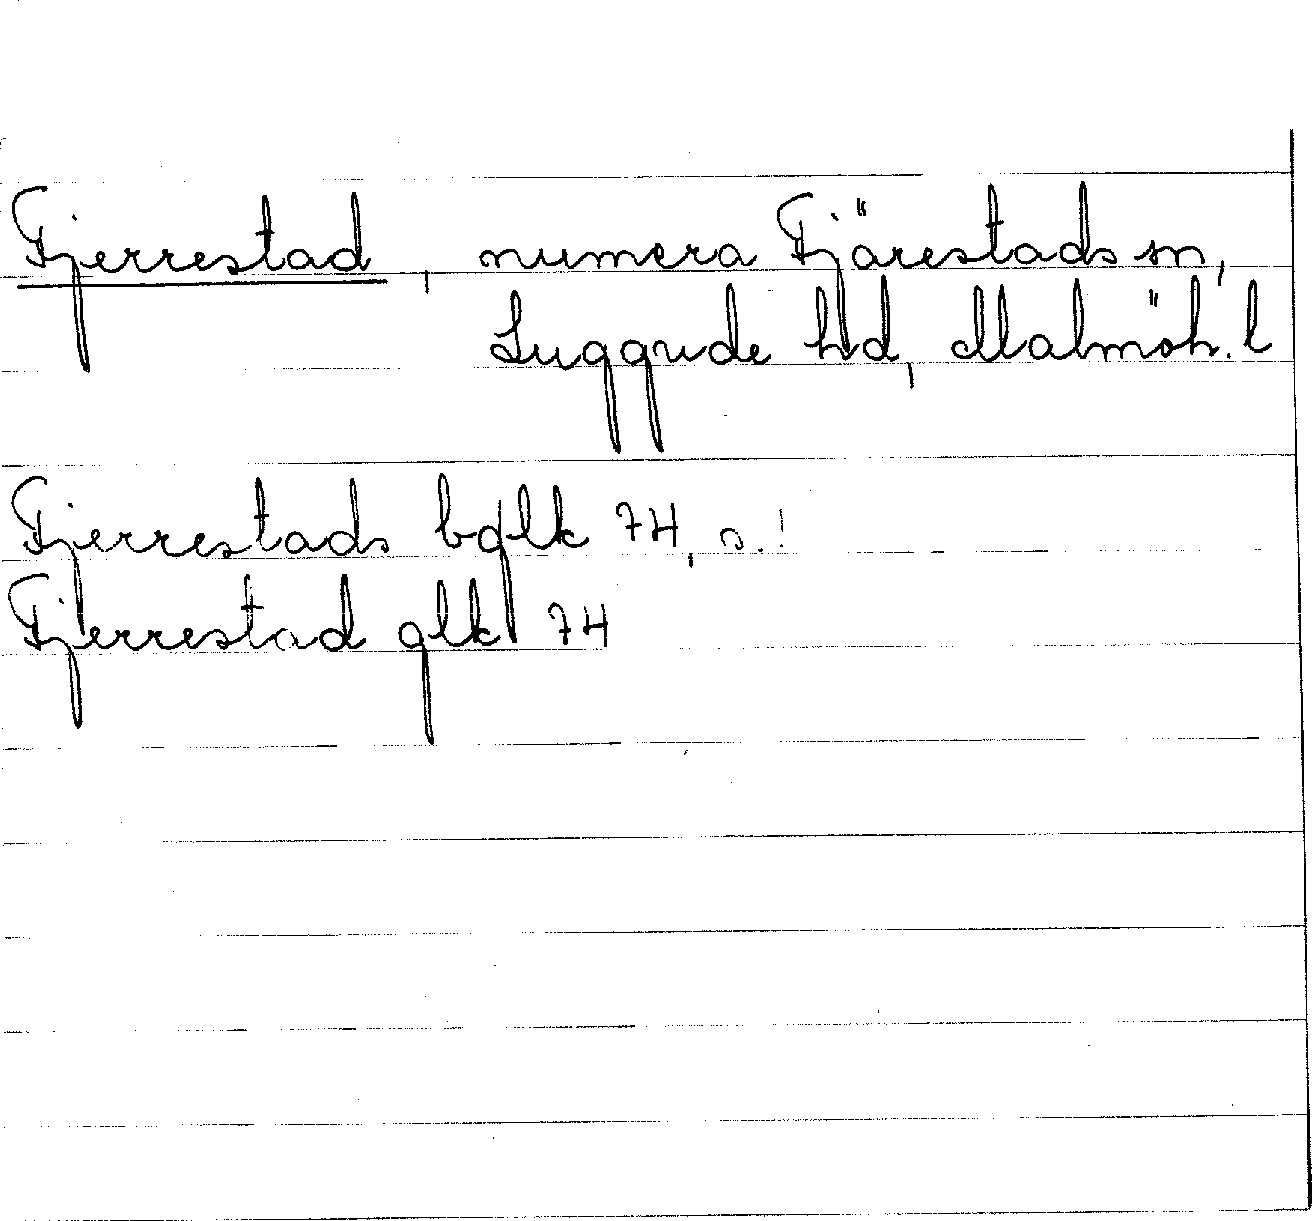 Fjerrestad, numera Fjärestads sn,
Luggude hd, Malmöh. l
Fjerrestads bglk 74, s.!
Fjerrestad glk 74